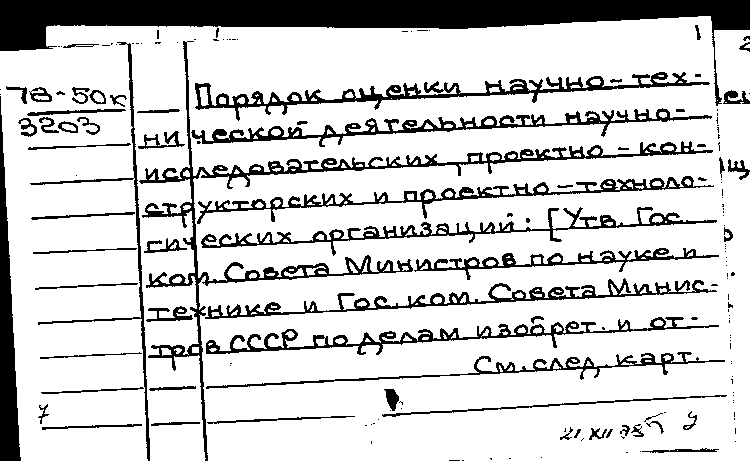 1
78-50к
3203
Порядок оценки научно-тех-
нической деятельности научно-
исследовательских, проектно-кон-
структорских и проектно-техноло-
гических организаций: [Утв. Гос.
ком. Совета Министров по науке и
технике и Гос. ком. Совета Минис-
тров СССР по делам изобрет. и от-
См. след. карт.
7
21.XII 78